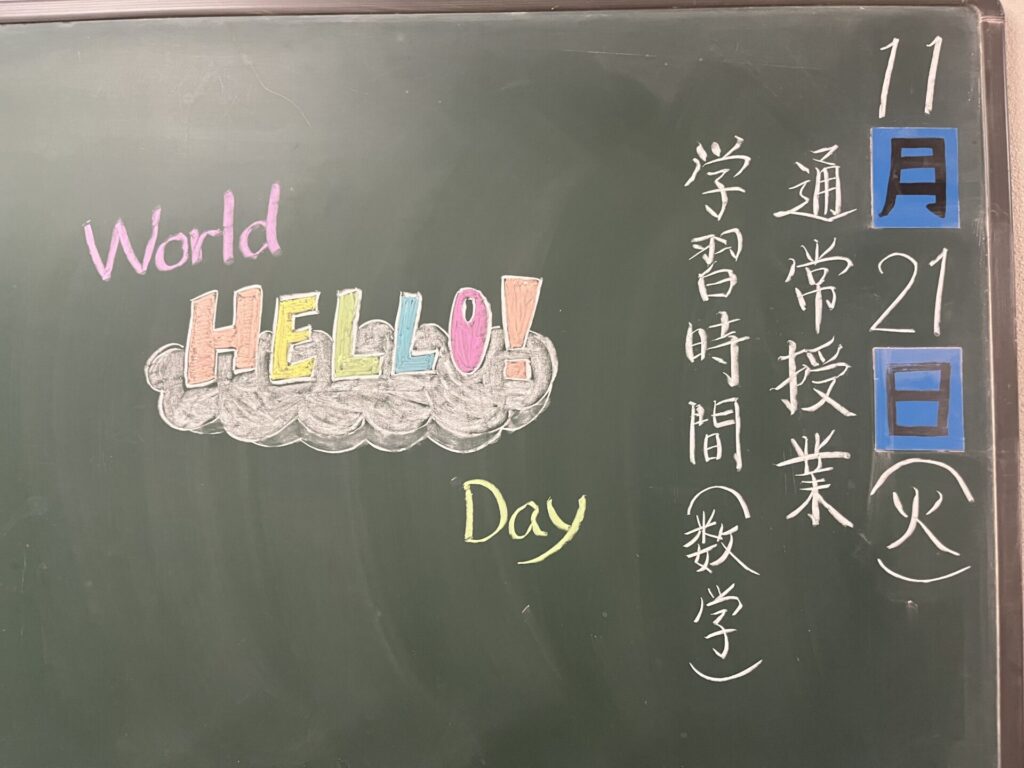 11月21日(火)
通常授業
学習時間(数学)
World
HELLO!
Day